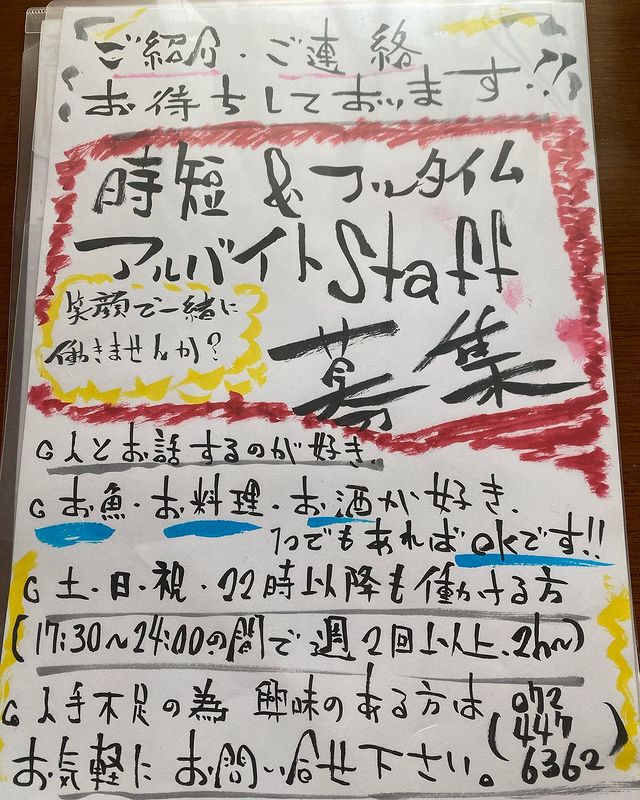 ご紹介・ご連絡
お待ちしております!!
時短 & フルタイム
アルバイトStaff
笑顔で一緒に
働きませんか?
募集
人とお話するのが好き.
お魚・お料理・お酒が好き.
1つでもあればokです!!
土・日・祝・22時以降も働ける方
(17:30〜24:00の間で週2回以上.2h〜)
人手不足の為 興味のある方は
お気軽にお問い合せ下さい。
(072
447
6362)